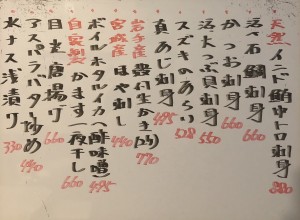 天然インド鮪中トロ刺身 880
活〆石鯛刺身 660
かつお刺身 660
活大つぶ貝刺身 550
スズキのあらい 528
真あじ刺身 495
岩手産 殻付生かき(1ケ) 770
宮城産 ほや刺し 440
ボイルホタルイカ 酢味噌 495
自家製 かます一夜干し 660
目光唐揚げ 660
アスパラバター炒め 440
水ナス浅漬け 330